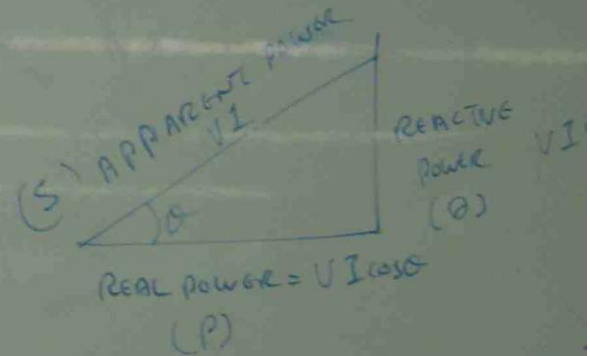 (S) APPARENT POWER
VI
θ
REACTIVE
POWER VI
(Q)
REAL POWER = VI cosθ
(P)